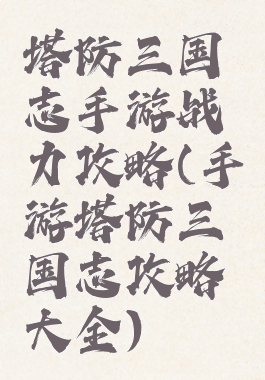 塔防三国
志手游战
力攻略(手
游塔防三
国志攻略
大全)